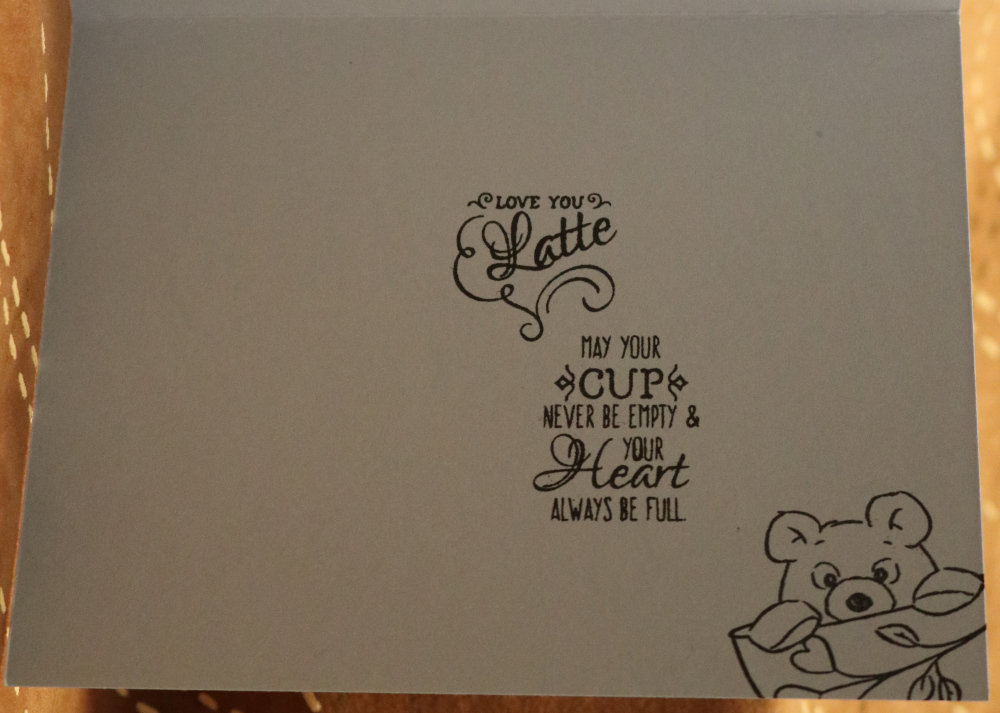 LOVE YOU
Latte
MAY YOUR
CUP
NEVER BE EMPTY &
YOUR
Heart
ALWAYS BE FULL.